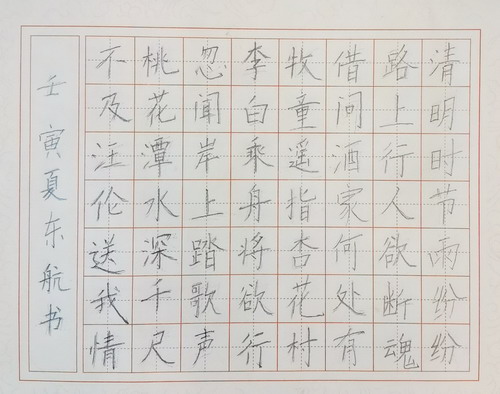 清明时节雨纷纷
路上行人欲断魂
借问酒家何处有
牧童遥指杏花村
李白乘舟将欲行
忽闻岸上踏歌声
桃花潭水深千尺
不及汪伦送我情
壬寅夏东航书